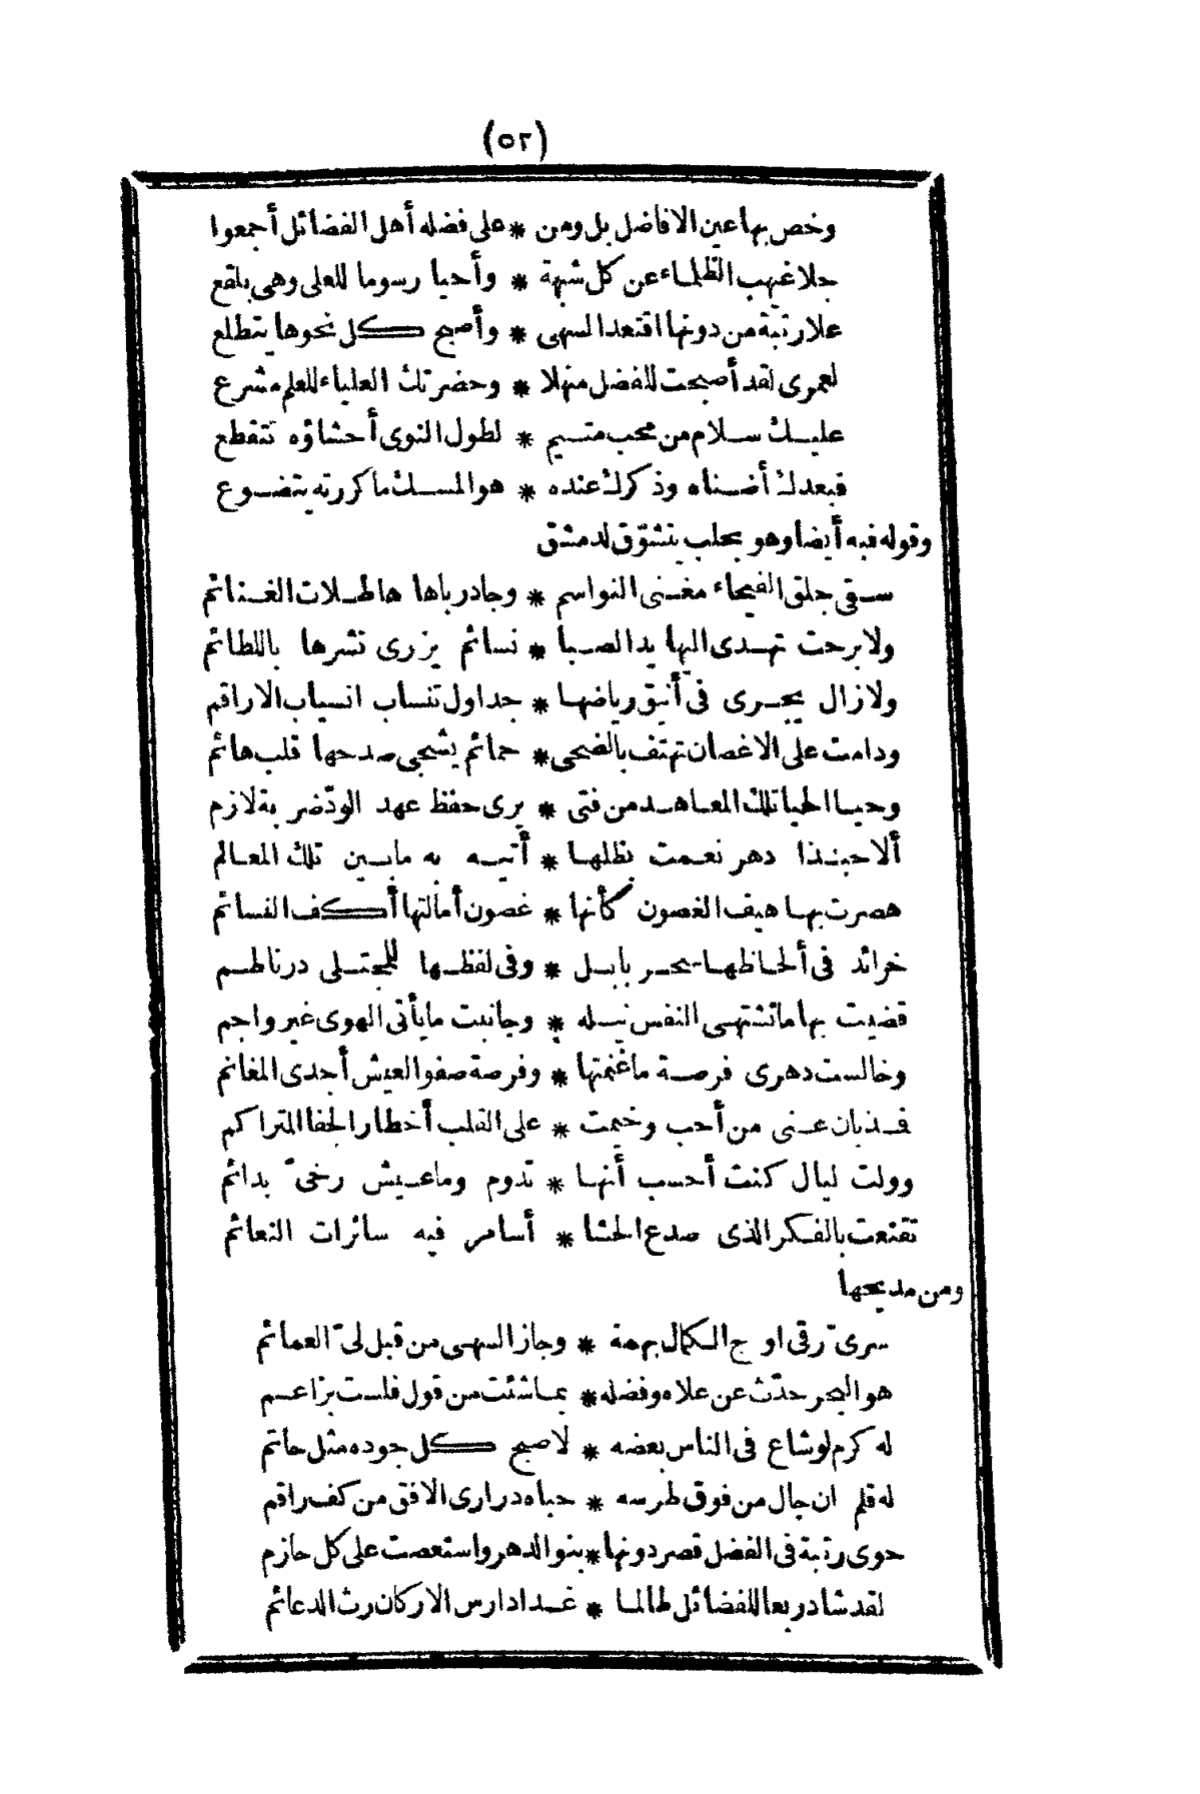 (٥٢)
وخص بها عين الافاضل بل ومن * على فضله أهل الفضائل أجمعوا
جلا غيهب الظلماء عن كل شبهة * وأحيا رسوما للعلى وهى بلقع
علا رتبة من دونها اقتعد السهى * وأصبح كل نحوها يتطلع
لعمرى لقد أصبحت للفضل منهلا * وحضرتك العلياء للعلم مشرع
عليك سلام من محب متيم * لطول النوى أحشاؤه تتقطع
فبعدك أضناه وذكرك عنده * هو المسك ما كررته يتضوع
وقوله فيه أيضا وهو بحلب يتشوّق لدمشق
سقى جلق الفيحاء مغنى النواسم * وجاد رباها هاطلات الغنائم
ولا برحت تهدى اليها يد الصبا * نسائم يزرى نشرها باللطائم
ولا زال يجرى فى أنيق رياضها * جداول تنساب انسياب الاراقم
ودامت على الاغصان تهتف بالضحى * حمائم يشجى صدحها قلب هائم
وحيا الحيا تلك المعاهد من فتى * يرى حفظ عهد الودّ ضربة لازم
ألا حبذا دهر نعمت بظلها * أتيه به ما بين تلك المعالم
هصرت بها هيف الغصون كأنها * غصون أمالتها أكف النسائم
خرائد فى ألحاظها سحر بابل * وفى لفظها للمجتلى در ناظم
قضيت بها ما تشتهى النفس نيله * وجانبت ما يأتى الهوى غير واجم
وخالست دهرى فرصة ما غنمتها * وفرصة صفو العيش أجدى المغانم
فذ بان عنى من أحب وخيمت * على القلب أخطار الجفا المتراكم
وولت ليال كنت أحسب أنها * تدوم وما عيش رخىّ بدائم
تقنعت بالفكر الذى صدع الحشا * أسامر فيه سائرات النعائم
ومن مديحها
سرىّ رقى اوج الكمال بهمة * وجاز السهى من قبل لىّ العمائم
هو البحر حدّث عن علاه وفضله * بما شئت من قول فلست بزاعم
له كرم لو شاع فى الناس بعضه * لاصبح كل جوده مثل حاتم
له قلم ان جال من فوق طرسه * حباه درارى الافق من كف راقم
حوى رتبة فى الفضل قصر دونها * بنو الدهر واستعصت على كل حازم
لقد شاد ربعا للفضائل طالما * غدا دارس الاركان رث الدعائم